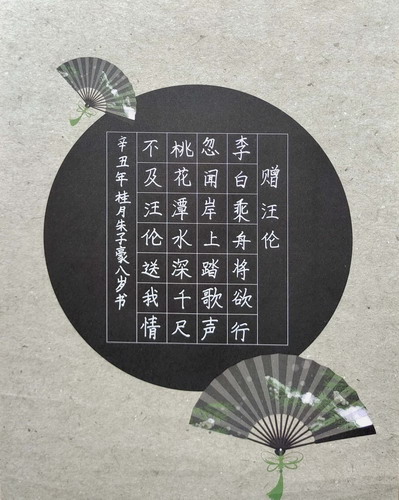 赠汪伦
李白乘舟将欲行
忽闻岸上踏歌声
桃花潭水深千尺
不及汪伦送我情
辛丑年桂月朱子豪八岁书